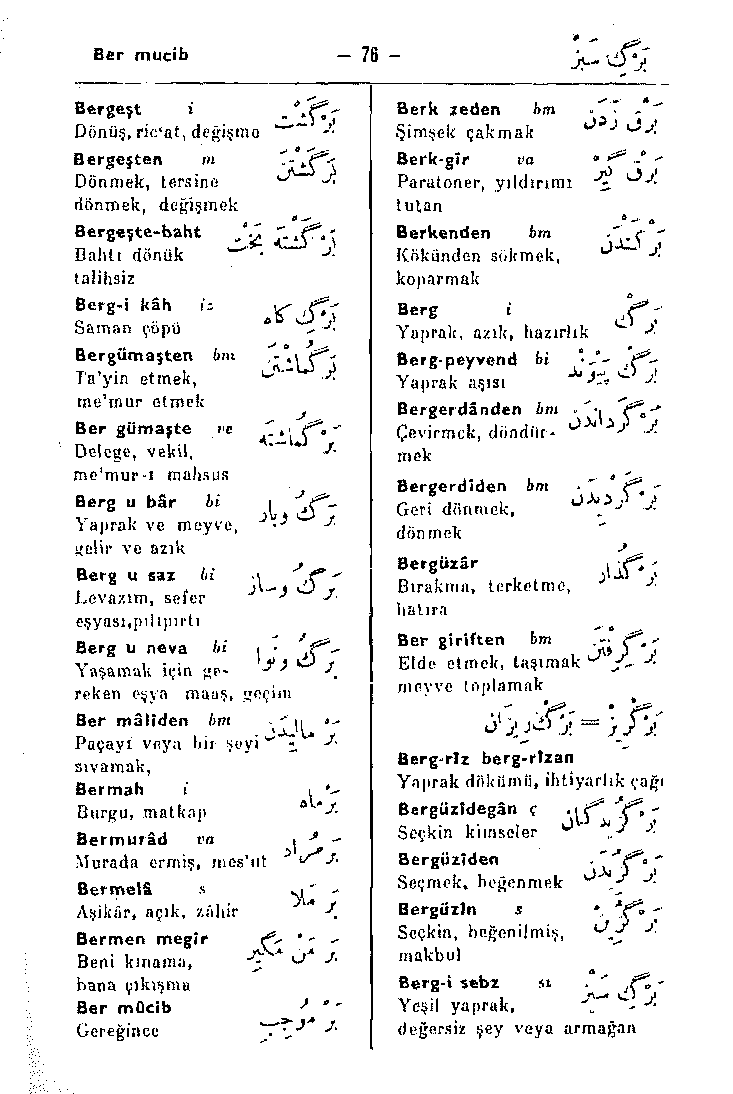 Ber mucib – 76 – بَرْگِ سَبْزْ
Bergeşt i بَرْگَشْتْ
Dönüş, ric‘at, değişme
Bergeşten m بَرْگَشْتَنْ
Dönmek, tersine
dönmek, değişmek
Bergeşte-baht بَرْگَشْتَه بَخْت
Bahtı dönük
talihsiz
Berg-i kâh is بَرْگِ كَاه
Saman çöpü
Bergümaşten bm بَرْگُمَاشْتَنْ
Ta'yin etmek,
me'mur etmek
Ber gümaşte ve بَرْگُمَاشْتَه
Delege, vekil,
me'mur-ı mahsus
Berg u bâr bi بَرْگُ وبار
Yaprak ve meyve,
gelir ve azık
Berg u saz bi بَرْگُ وساز
Levazım, sefer
eşyası,pılıpırtı
Berg u neva bi بَرْگُ ونوا
Yaşamak için ge-
reken eşya maaş, geçim
Ber mâlîden bm بَرْ مَالِيدَنْ
Paçayı veya bir şeyi
sıvamak,
Bermah i بَرْمَاه
Burgu, matkap
Bermurâd va بَرْ مُرَاد
Murada ermiş, mes'ut
Bermelâ s بَرْ مَلا
Aşikâr, açık, zâhir
Bermen megîr بَرْ مَنْ مَگِير
Beni kınama,
bana çıkışma
Ber mûcib بَرْ مُوجِبِ
Gereğince
Berk zeden bm بَرْق زَدَنْ
Şimşek çakmak
Berk-gîr va بَرْق گِيرْ
Paratoner, yıldırımı
tutan
Berkenden bm بَرْ كَنْدَنْ
Kökünden sökmek,
koparmak
Berg i بَرْگْ
Yaprak, azık, hazırlık
Berg-peyvend bi بَرْگ پَيْوَنْد
Yaprak aşısı
Bergerdânden bm بَرْگَرْدَانْدَنْ
Çevirmek, döndür-
mek
Bergerdîden bm بَرْگَرْدِيدَنْ
Geri dönmek,
dönmek
Bergüzâr بَرْگُذار
Bırakma, terketme,
hatıra
Ber giriften bm بَرْ گِرِفْتَنْ
Elde etmek, taşımak
meyve toplamak
بَرْگْرِيز = بَرْگْ رِيزَانْ
Berg-rîz berg-rîzan
Yaprak dökümü, ihtiyarlık çağı
Bergüzîdegân ç بَرْگُزِيدَگَانْ
Seçkin kimseler
Bergüzîden بَرْگُزِيدَنْ
Seçmek, beğenmek
Bergüzîn s بَرْگُزِينْ
Seçkin, beğenilmiş,
makbul
Berg-i sebz sı بَرْگِ سَبْز
Yeşil yaprak,
değersiz şey veya armağan